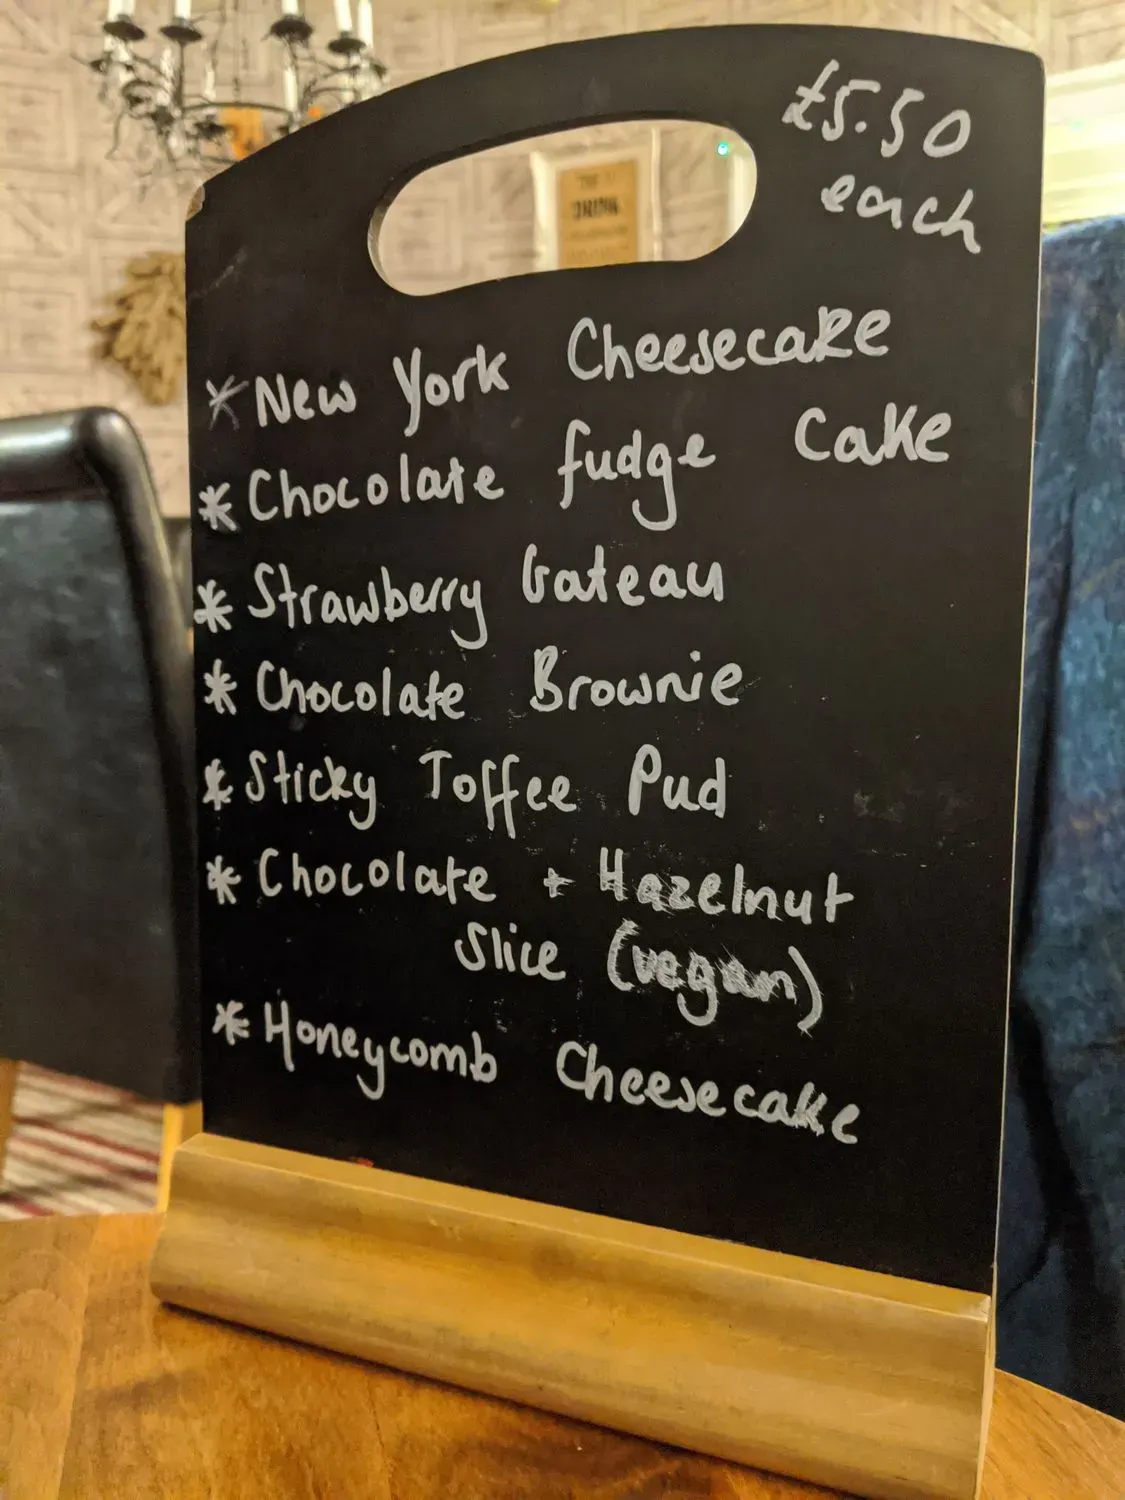 £5.50
each
* New York Cheesecake
* Chocolate fudge Cake
* Strawberry Gateau
* Chocolate Brownie
* Sticky Toffee Pud
* Chocolate + Hazelnut
Slice (vegan)
* Honeycomb Cheesecake
DRINK